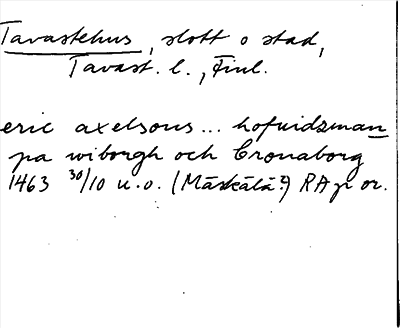 Tavastehus, slott o stad,
Tavast. l., Finl.
eric axelsons... hofuidzman
pa wiborgh och Cronaborg
1463 30/10 u.o. (Måskälä?) RAp or.